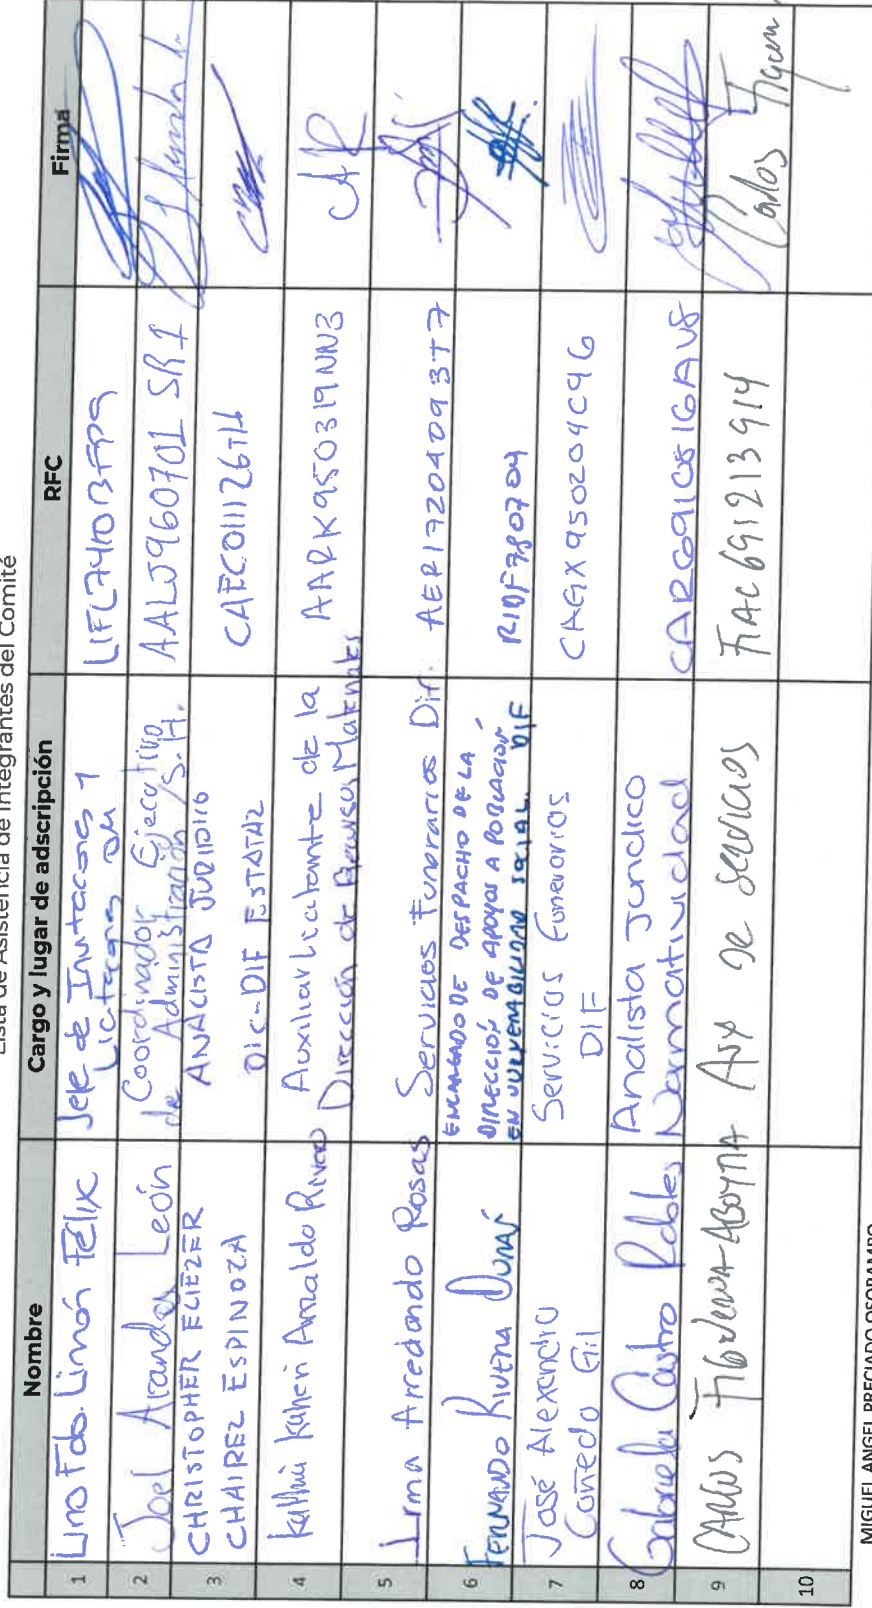 Lista de Asistencia de Integrantes del Comité
Nombre Cargo y lugar de adscripción RFC Firma
1 Lino Fdo. Limón Félix Jefe de Invitaciones y
Licitaciones OM LIFL741013FP9
2 Joel Aranda León Coordinador Ejecutivo
de Administración / S.H. AALJ960701 SR1
3 CHRISTOPHER ELIEZER
CHAIREZ ESPINOZA ANALISTA JURIDICO
OIC-DIF ESTATAL CAEC011126TI4
4 Karen Arnaldo Rivero Auxiliar licitante de la
Dirección de Recursos Materiales AARK950319NN3 AR
5 Irma Arredondo Rosas Servicios Funerarios Dif. AERI7204093T7
6 FERNANDO RIVERA DURÁN ENCARGADO DE DESPACHO DE LA
DIRECCIÓN DE APOYOS A POBLACIÓN
EN VULNERABILIDAD SOCIAL DIF RIDF780704
7 José Alexandro
Cañedo Gil Servicios Funerarios
DIF CAGX950204C96
8 Gabriela Castro Robles Analista Jurídico
Normatividad CARG910816AV8
9 CARLOS FIGUEROA ABOYTIA Aux de servicios FIAC691213914 Carlos Figueroa
10
MIGUEL ANGEL PRECIADO OSOBAMPO